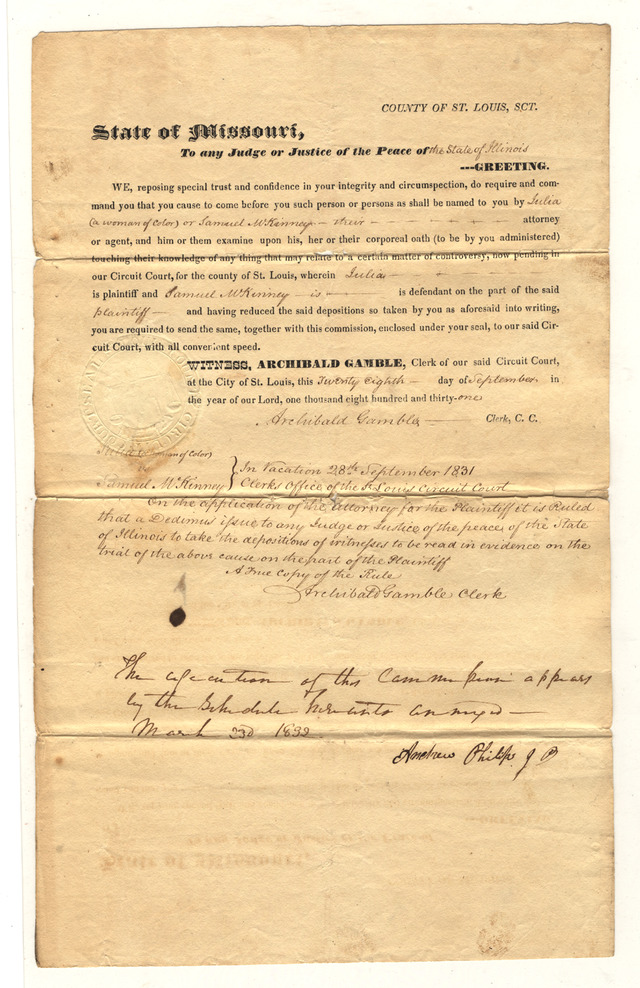 COUNTY OF ST. LOUIS, SCT.
State of Missouri,
To any Judge or Justice of the Peace of the State of Illinois
---GREETING.
WE, reposing special trust and confidence in your integrity and circumspection, do require and com-
mand you that you cause to come before you such person or persons as shall be named to you by Julia
(a woman of color) or Samuel McKinney - their - attorney
or agent, and him or them examine upon his, her or their corporeal oath (to be by you administered)
touching their knowledge of any thing that may relate to a certain matter of controversy, now pending in
our Circuit Court, for the county of St. Louis, wherein Julia -
is plaintiff and Samuel McKinney - is - is defendant on the part of the said
plaintiff - and having reduced the said depositions so taken by you as aforesaid into writing,
you are required to send the same, together with this commission, enclosed under your seal, to our said Cir-
cuit Court, with all convenient speed.
WITNESS, ARCHIBALD GAMBLE, Clerk of our said Circuit Court,
at the City of St. Louis, this Twenty eighth - day of September in
the year of our Lord, one thousand eight hundred and thirty-one
Archibald Gamble - Clerk, C. C.
Julia (a woman of color)
vs
Samuel McKinney
} In Vacation 28th September 1831
Clerks Office of the St Louis Circuit Court
On the application of the attorney for the Plaintiff it is Ruled
that a Dedimus issue to any Judge or Justice of the peace of the State
of Illinois to take the depositions of witnesses to be read in evidence on the
trial of the above cause on the part of the Plaintiff
A True Copy of the Rule
Archibald Gamble Clerk
The execution of this Commission appears
by the Schedule hereunto annexed -
March 23d 1832
Andrew Philips J P